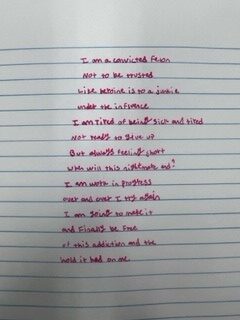 I am a convicted felon
Not to be trusted
Like heroine is to a junkie
under the infrance
I am tired of being sick and tired
Not ready to give up
But always feeling short
When will this nightmare end?
I am work in progress
over and over I try again
I am going to make it
and Finally be Free
of this addiction and the
hold it had on me.